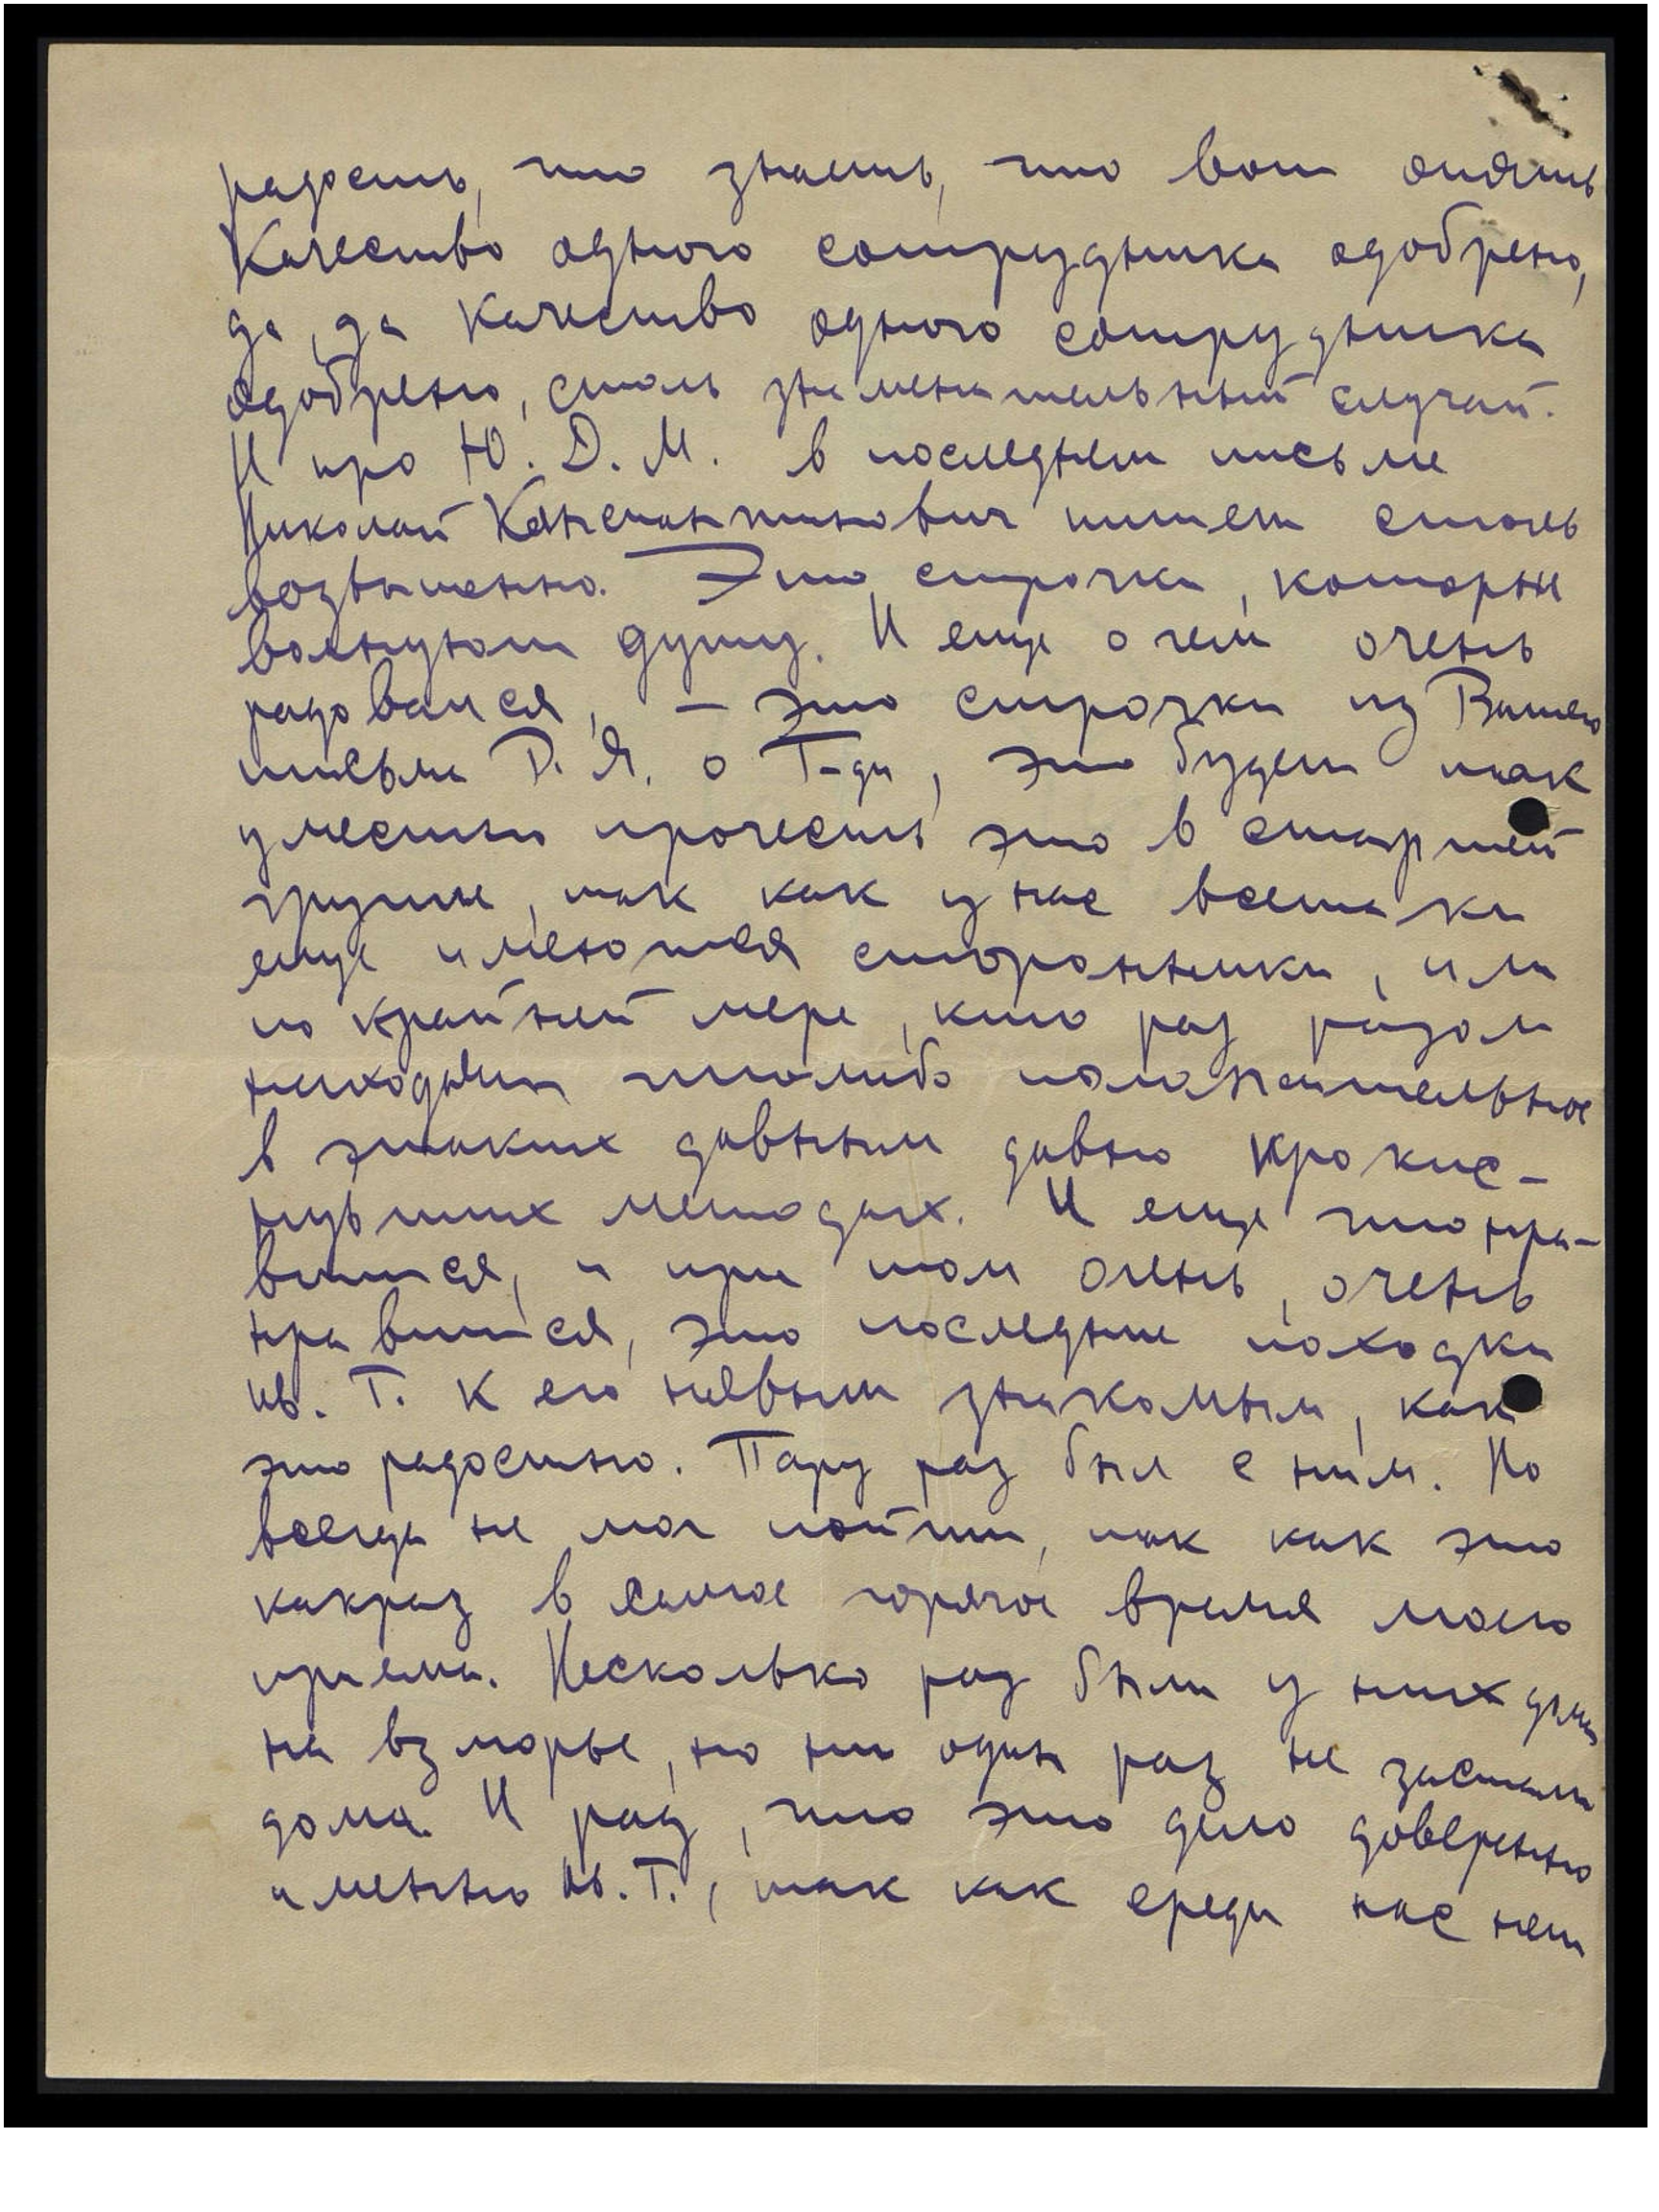 радость, что знаешь, что вот опять
Качество одного сотрудника одобрено,
да, да качество одного сотрудника
одобрено, столь знаменательный случай.
И про Ю. Д. М. в последнем письме
Николай Константинович пишет столь
возвышенно. Это строчки, которые
волнуют душу. И еще о чем очень
радовался, – это строчки из Вашего
письма Д. Я. о Т-ди, это будет так
уместно прочесть это в старшей
группе, так как у нас всетаки
еще имеются сторонники, или
по крайней мере, кто раз разом
находят чтолибо положительное
в этаких давным давно прокис-
нувших методах. И еще что нра-
вится, и при том очень, очень
нравится, это последние походки
Ив. Г. к его новым знакомым, как
это радостно. Пару раз был с ним. Но
всегда не мог пойти, так как это
какраз в самое горячое время моего
приема. Несколько раз были у них дома
на взморье, но ни один раз не застали
дома. И рад, что это дело доверенно
именно Ив. Г., так как среди нас нет